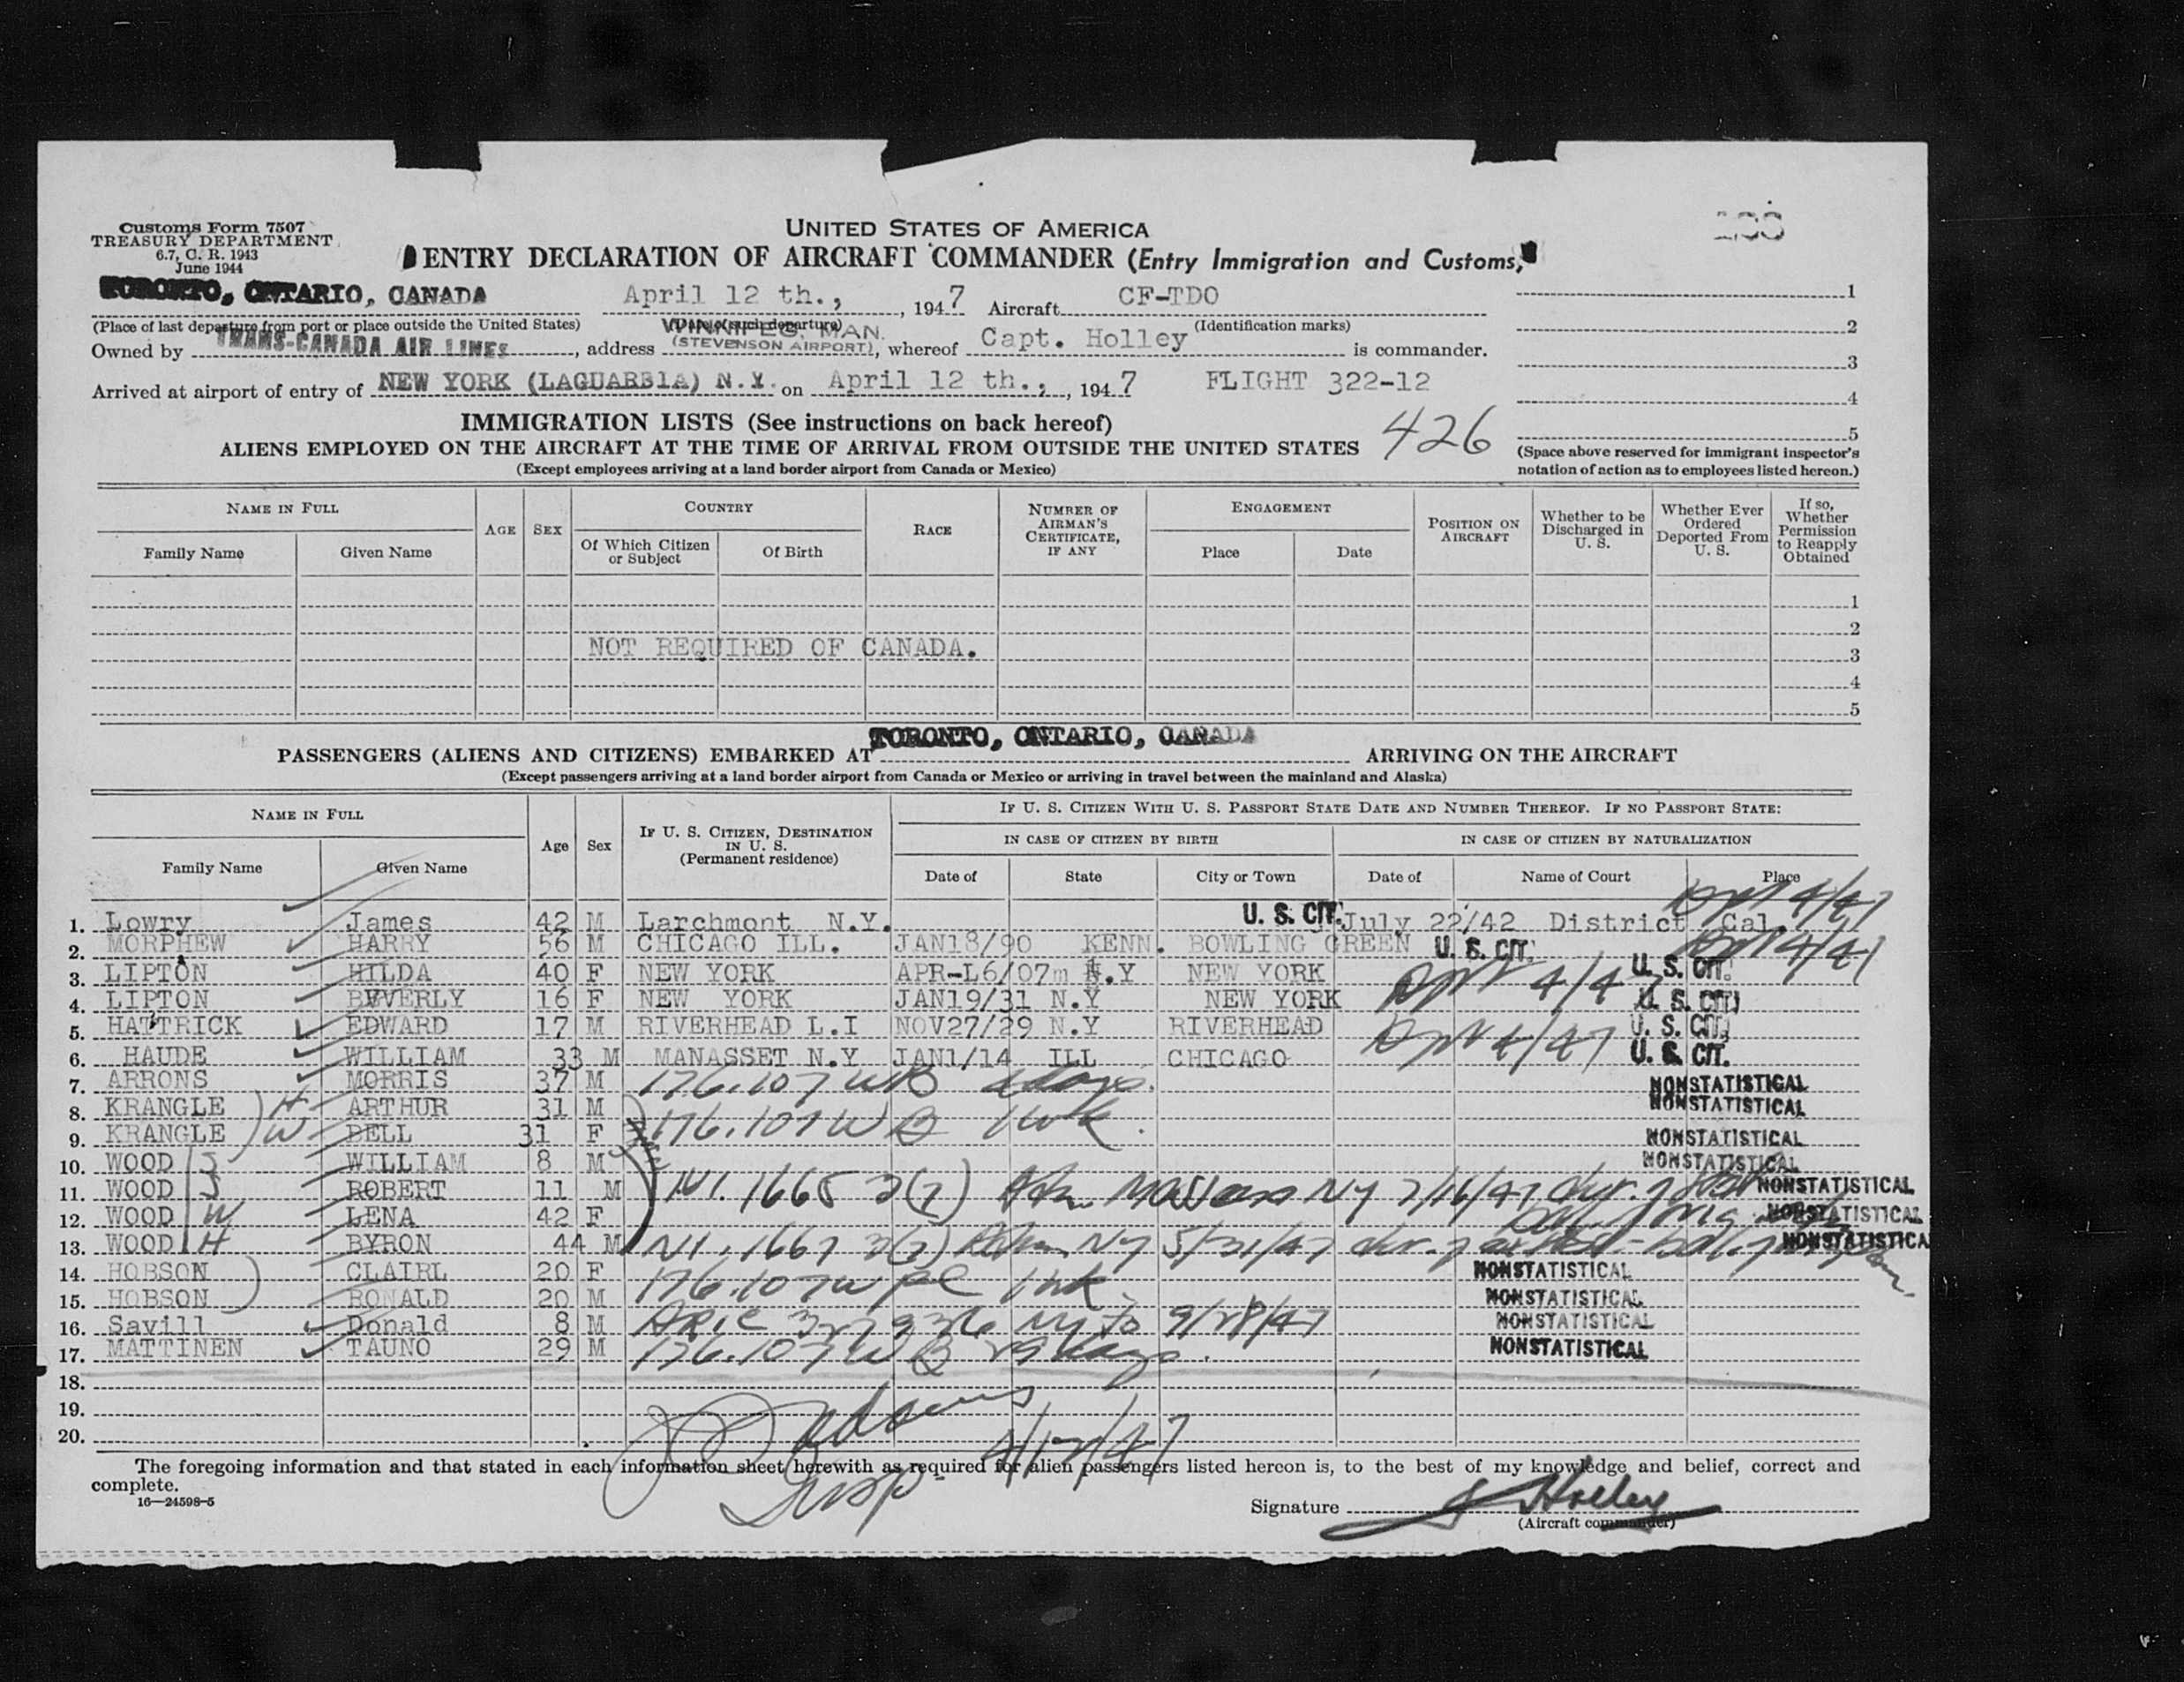 Customs Form 7507
TREASURY DEPARTMENT
6.7, C. R. 1943
June 1944
UNITED STATES OF AMERICA
ENTRY DECLARATION OF AIRCRAFT COMMANDER (Entry Immigration and Customs)
TORONTO, ONTARIO, CANADA April 12 th., , 1947 Aircraft CF-TDO 1
(Place of last departure from port or place outside the United States) (Date of such departure) (Identification marks) 2
WINNIPEG, MAN.
Owned by TRANS-CANADA AIR LINES, address (STEVENSON AIRPORT), whereof Capt. Holley is commander. 3
Arrived at airport of entry of NEW YORK (LAGUARDIA) N.Y. on April 12 th., , 1947 FLIGHT 322-12 4
IMMIGRATION LISTS (See instructions on back hereof) 426 5
ALIENS EMPLOYED ON THE AIRCRAFT AT THE TIME OF ARRIVAL FROM OUTSIDE THE UNITED STATES (Space above reserved for immigrant inspector's
(Except employees arriving at a land border airport from Canada or Mexico) notation of action as to employees listed hereon.)
NAME IN FULL AGE SEX COUNTRY RACE NUMBER OF AIRMAN'S CERTIFICATE, IF ANY ENGAGEMENT POSITION ON AIRCRAFT Whether to be Discharged in U. S. Whether Ever Ordered Deported From U. S. If so, Whether Permission to Reapply Obtained
Family Name Given Name Of Which Citizen or Subject Of Birth Place Date
1
2
NOT REQUIRED OF CANADA. 3
4
5
PASSENGERS (ALIENS AND CITIZENS) EMBARKED AT TORONTO, ONTARIO, CANADA ARRIVING ON THE AIRCRAFT
(Except passengers arriving at a land border airport from Canada or Mexico or arriving in travel between the mainland and Alaska)
NAME IN FULL Age Sex IF U. S. CITIZEN, DESTINATION IN U. S. (Permanent residence) IF U. S. CITIZEN WITH U. S. PASSPORT STATE DATE AND NUMBER THEREOF. IF NO PASSPORT STATE:
IN CASE OF CITIZEN BY BIRTH IN CASE OF CITIZEN BY NATURALIZATION
Family Name Given Name Date of State City or Town Date of Name of Court Place
1. Lowry James 42 M Larchmont N.Y. U. S. CIT. July 22/42 District Cal 4/47
2. MORPHEW HARRY 56 M CHICAGO ILL. JAN18/90 KENN. BOWLING GREEN U. S. CIT. 4/47
3. LIPTON HILDA 40 F NEW YORK APR-L6/07m N.Y NEW YORK U. S. CIT.
4. LIPTON BEVERLY 16 F NEW YORK JAN19/31 N.Y NEW YORK 4/47 U. S. CIT.
5. HATTRICK EDWARD 17 M RIVERHEAD L.I NOV27/29 N.Y RIVERHEAD U. S. CIT.
6. HAUDE WILLIAM 33 M MANASSET N.Y JAN1/14 ILL CHICAGO 4/47 U. S. CIT.
7. ARRONS MORRIS 37 M 176.107 WB days. NONSTATISTICAL
8. KRANGLE H ARTHUR 31 M NONSTATISTICAL
9. KRANGLE W BELL 31 F 176.107 W B 1 wk. NONSTATISTICAL
10. WOOD S WILLIAM 8 M NONSTATISTICAL
11. WOOD S ROBERT 11 M NI. 1665 3(2) NY 7/16/47 NONSTATISTICAL
12. WOOD W LENA 42 F NONSTATISTICAL
13. WOOD H BYRON 44 M NI. 1667 3(2) NY 5/31/47 NONSTATISTICA
14. HOBSON CLAIRL 20 F NONSTATISTICAL
15. HOBSON RONALD 20 M 176.107 W 1 wk NONSTATISTICAL
16. Savill Donald 8 M to 9/28/47 NONSTATISTICAL
17. MATTINEN TAUNO 29 M 176.107 W B 29 days. NONSTATISTICAL
18.
19.
20. 4/12/47
The foregoing information and that stated in each information sheet herewith as required for alien passengers listed hereon is, to the best of my knowledge and belief, correct and
complete.
16—24598-5
Insp
Signature Holley
(Aircraft commander)